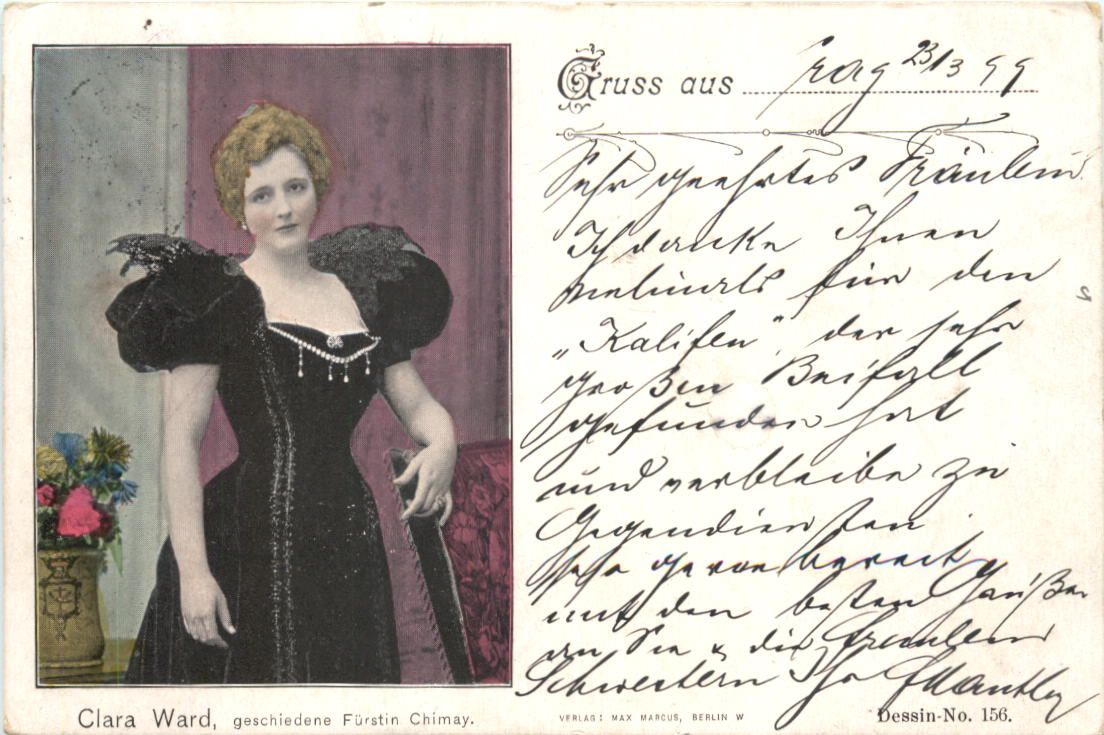 Gruss aus Prag 23/3 99
Sehr geehrtes Fräulein
Ich danke Ihnen
vielmals für den
„Kalifen", der sehr
großen Beifall
gefunden hat
und verbleibe zu
Gegendiensten
sehr gerne bereit
mit den besten Grüßen
an Sie & die Fräulein
Schwestern
Clara Ward, geschiedene Fürstin Chimay.
VERLAG: MAX MARCUS, BERLIN W
Dessin-No. 156.